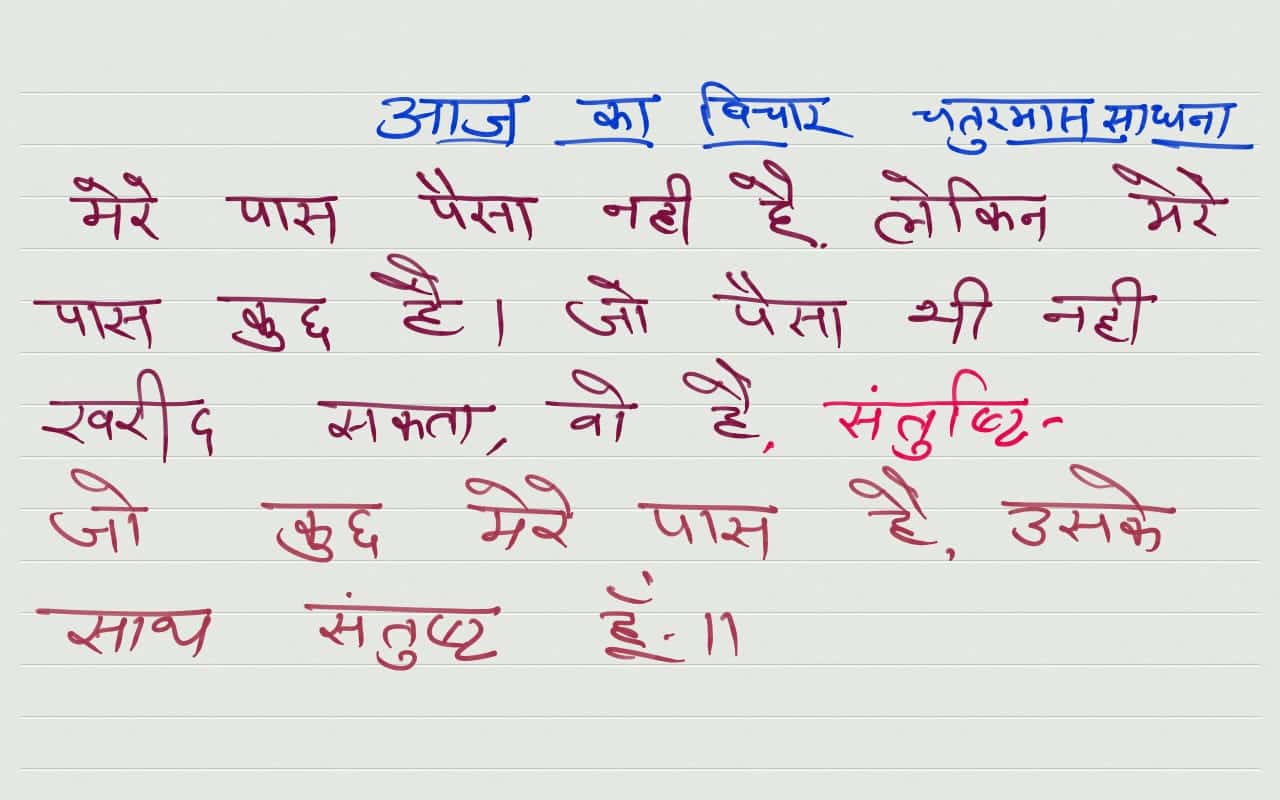 आज का विचार चतुरमास साधना
मेरे पास पैसा नही है. लेकिन मेरे
पास कुछ है। जो पैसा भी नही
खरीद सकता, वो है, संतुष्टि-
जो कुछ मेरे पास है, उसके
साथ संतुष्ट हूँ.॥